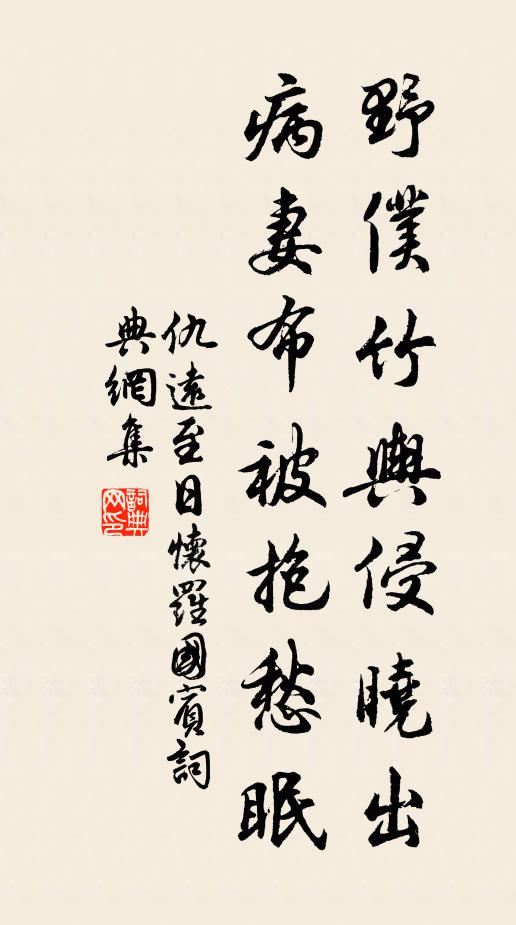 野僕竹輿侵曉出
病妻布被抱愁眠
仇遠至日懷羅國賓詞
典網集
詞典網印